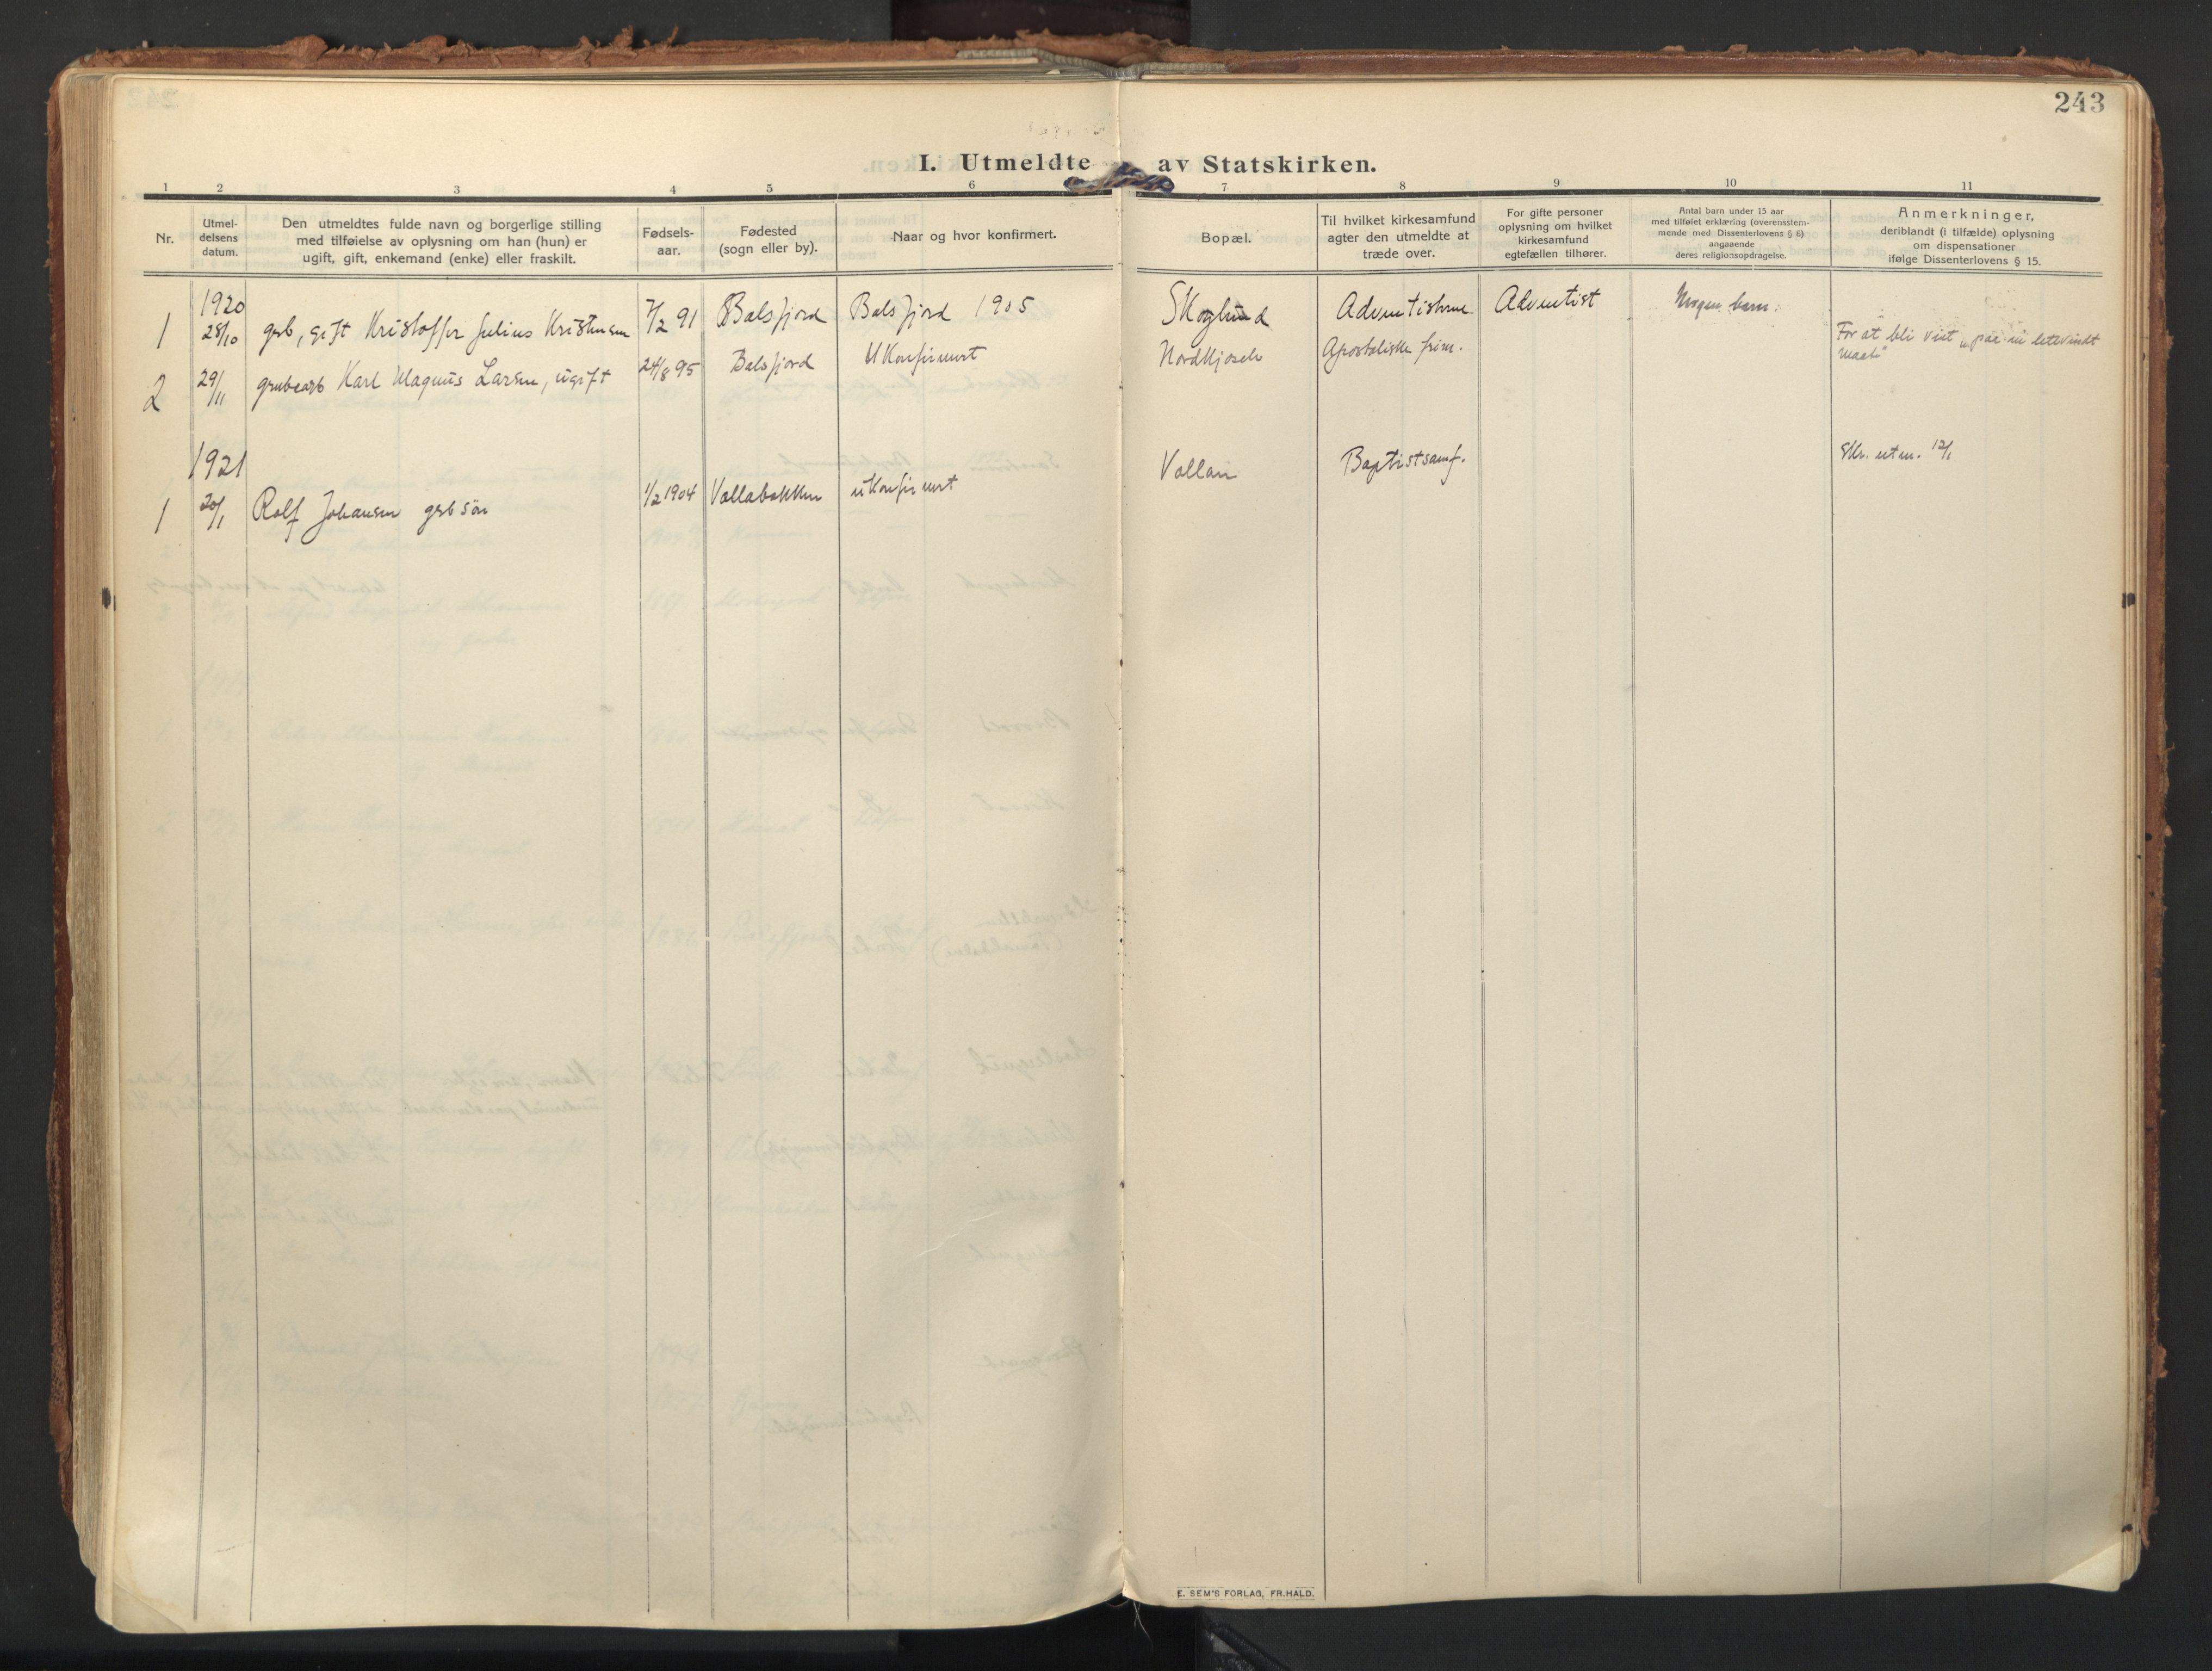 243
I. Utmeldte av Statskirken.
1 2 3 4 5 6 7 8 9 10 11
Nr.
Utmel-
delsens
datum.
Den utmeldtes fulde navn og borgerlige stilling
med tilføielse av oplysning om han (hun) er
ugift, gift, enkemand (enke) eller fraskilt.
Fødsels-
aar.
Fødested
(sogn eller by).
Naar og hvor konfirmert.
Bopæl.
Til hvilket kirkesamfund
agter den utmeldte at
træde over.
For gifte personer
oplysning om hvilket
kirkesamfund
egtefællen tilhører.
Antal barn under 15 aar
med tilføiet erklæring (overensstem-
mende med Dissenterlovens § 6)
angaaende
deres religionsopdragelse.
Anmerkninger,
deriblandt (i tilfælde) oplysning
om dispensationer
ifølge Dissenterlovens § 15.
1920
1 28/10 grb, gift Kristoffer Julius Kristensen 7/2 91 Balsfjord Balsfjord 1905 Skoglund Adventisterne Adventist Ingen barn.
2 29/11 grubearb Karl Magnus Larsen, ugift 24/8 95 Balsfjord Ukonfirmert Nordkjosen Apostoliske frim. For at bli viet "paa en lettvindt
maate"
1921
1 20/1 Rolf Johansen grb søn 1/2 1904 Vollabakken ukonfirmert Vollan Baptistsamf. Skr. utm. 12/1
E. SEM'S FORLAG, FR.HALD.